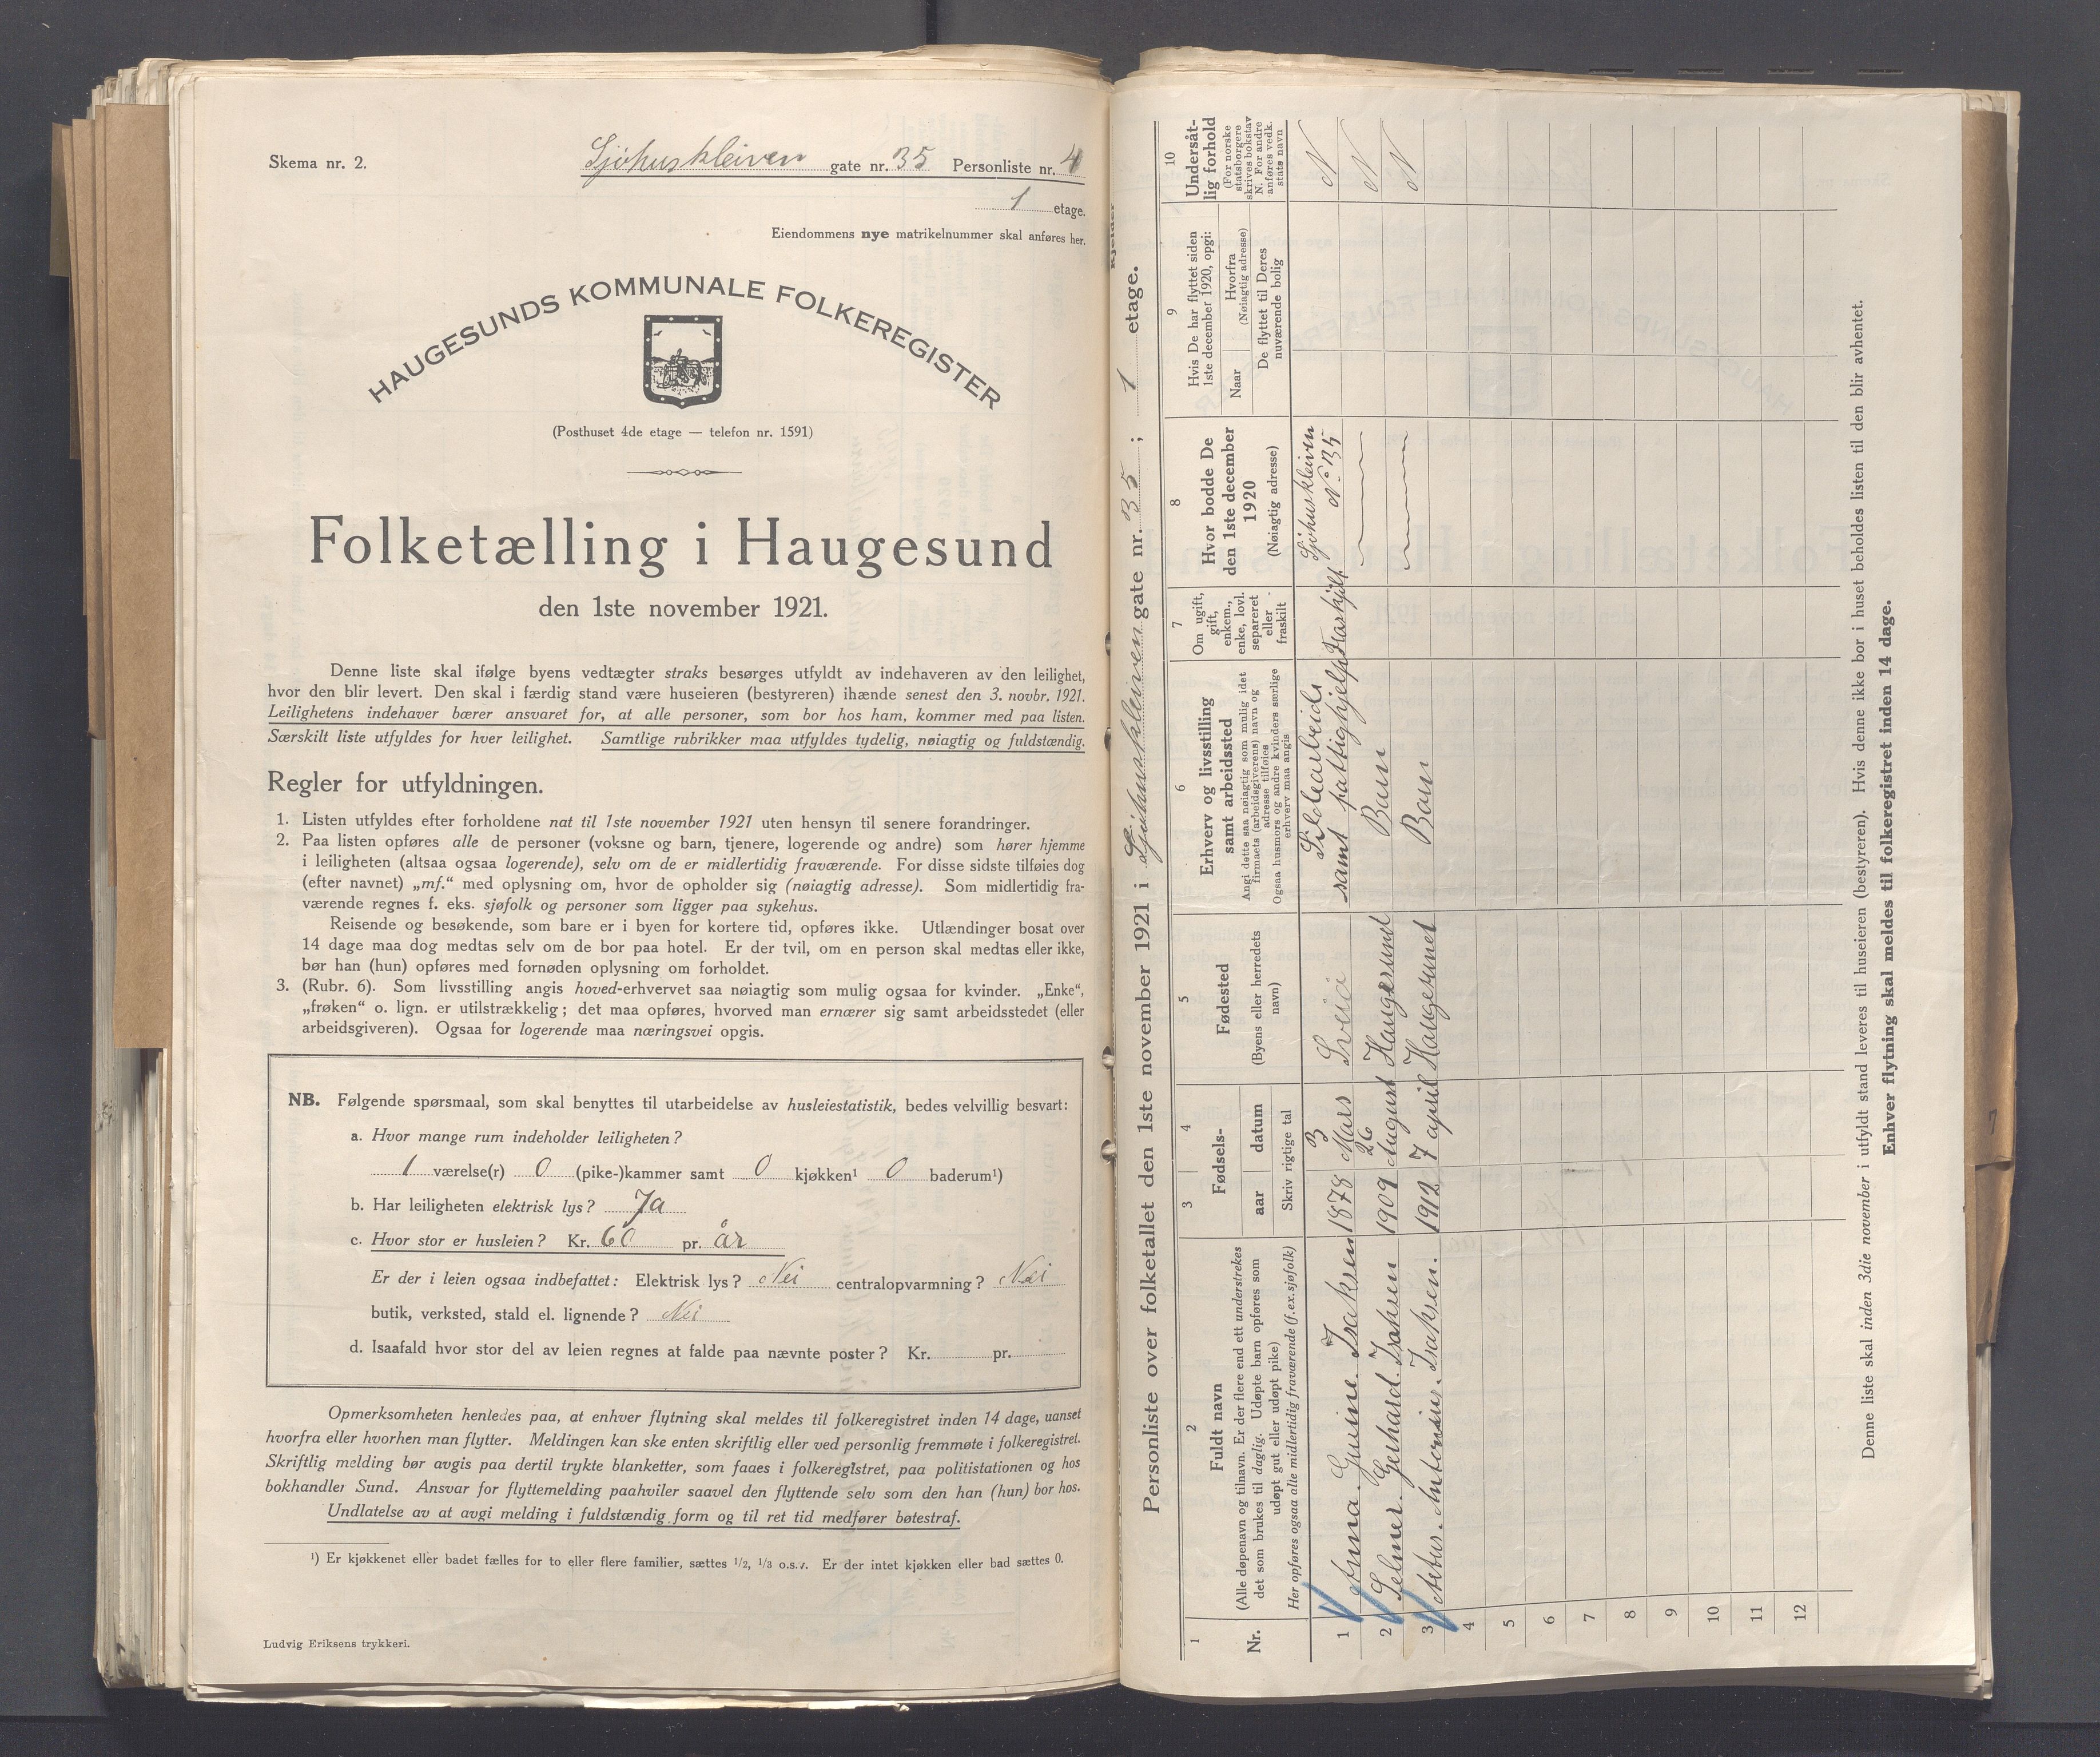 Skema nr. 2.
Sjöhuskleiven gate nr. 35 Personliste nr. 4
1 etage.
Eiendommens nye matrikelnummer skal anføres her.
HAUGESUNDS KOMMUNALE FOLKEREGISTER
(Posthuset 4de etage — telefon nr. 1591)
Folketælling i Haugesund
den 1ste november 1921.
Denne liste skal ifølge byens vedtægter straks besørges utfyldt av indehaveren av den leilighet,
hvor den blir levert. Den skal i færdig stand være huseieren (bestyreren) ihænde senest den 3. novbr. 1921.
Leilighetens indehaver bærer ansvaret for, at alle personer, som bor hos ham, kommer med paa listen.
Særskilt liste utfyldes for hver leilighet. Samtlige rubrikker maa utfyldes tydelig, nøiagtig og fuldstændig.
Regler for utfyldningen.
1. Listen utfyldes efter forholdene nat til 1ste november 1921 uten hensyn til senere forandringer.
2. Paa listen opføres alle de personer (voksne og barn, tjenere, logerende og andre) som hører hjemme
i leiligheten (altsaa ogsaa logerende), selv om de er midlertidig fraværende. For disse sidste tilføies dog
(efter navnet) „mf.“ med oplysning om, hvor de opholder sig (nøiagtig adresse). Som midlertidig fra-
værende regnes f. eks. sjøfolk og personer som ligger paa sykehus.
Reisende og besøkende, som bare er i byen for kortere tid, opføres ikke. Utlændinger bosat over
14 dage maa dog medtas selv om de bor paa hotel. Er der tvil, om en person skal medtas eller ikke,
bør han (hun) opføres med fornøden oplysning om forholdet.
3. (Rubr. 6). Som livsstilling angis hoved-erhvervet saa nøiagtig som mulig ogsaa for kvinder. „Enke“,
„frøken“ o. lign. er utilstrækkelig; det maa opføres, hvorved man ernærer sig samt arbeidsstedet (eller
arbeidsgiveren). Ogsaa for logerende maa næringsvei opgis.
NB. Følgende spørsmaal, som skal benyttes til utarbeidelse av husleiestatistik, bedes velvillig besvart:
a. Hvor mange rum indeholder leiligheten?
1 værelse(r) 0 (pike-)kammer samt 0 kjøkken¹ 0 baderum¹)
b. Har leiligheten elektrisk lys? Ja
c. Hvor stor er husleien? Kr. 60 pr. år
Er der i leien ogsaa indbefattet: Elektrisk lys? Nei centralopvarmning? Nei
butik, verksted, stald el. lignende? Nei
d. Isaafald hvor stor del av leien regnes at falde paa nævnte poster? Kr. pr.
Opmerksomheten henledes paa, at enhver flytning skal meldes til folkeregistret inden 14 dage, uanset
hvorfra eller hvorhen man flytter. Meldingen kan ske enten skriftlig eller ved personlig fremmøte i folkeregistret.
Skriftlig melding bør avgis paa dertil trykte blanketter, som faaes i folkeregistret, paa politistationen og hos
bokhandler Sund. Ansvar for flyttemelding paahviler saavel den flyttende selv som den han (hun) bor hos.
Undlatelse av at avgi melding i fuldstændig form og til ret tid medfører bøtestraf.
¹) Er kjøkkenet eller badet fælles for to eller flere familier, sættes 1/2, 1/3 o.s.v. Er der intet kjøkken eller bad sættes 0.
Ludvig Eriksens trykkeri.
Personliste over folketallet den 1ste november 1921 i Sjöhuskleiven gate nr. 35 ; 1 etage.
1 2 3 4 5 6 7 8 9 10
Nr.
Fuldt navn
(Alle døpenavn og tilnavn. Er der flere end ett understrekes
det som brukes til daglig. Udøpte barn opføres som
udøpt gut eller udøpt pike)
Her opføres ogsaa alle midlertidig fraværende (f.ex. sjøfolk)
Fødsels-
aar datum
Skriv rigtige tal
Fødested
(Byens eller herredets
navn)
Erhverv og livsstilling
samt arbeidssted
Angi dette saa nøiagtig som mulig idet
firmaets (arbeidsgiverens) navn og
adresse tilføies
Ogsaa husmors og andre kvinders særlige
erhverv maa angis
Om ugift,
gift,
enkem.,
enke, lovl.
separeret
eller
fraskilt
Hvor bodde De
den 1ste december
1920
(Nøiagtig adresse)
Hvis De har flyttet siden
1ste december 1920, opgi:
Naar
Hvorfra
(Nøiagtig adresse)
De flyttet til Deres
nuværende bolig
Undersåt-
lig forhold
(For norske
statsborgere
skrives bokstav
N. For andre
anføres vedk.
stats navn
1 Anna. Gurine. Isaksen 1878 3 Mars Sveiö Sildearbeide samt fattighjelp Fraskjilt Sjöhuskleiven No 35 N
2 Selmer. Gerhard. Isaksen 1909 26 August Haugesund Barn N
3 Artur. Antonius. Isaksen. 1912 7 april Haugesund Barn N
4
5
6
7
8
9
10
11
12
Denne liste skal inden 3die november i utfyldt stand leveres til huseieren (bestyreren). Hvis denne ikke bor i huset beholdes listen til den blir avhentet.
Enhver flytning skal meldes til folkeregistret inden 14 dage.